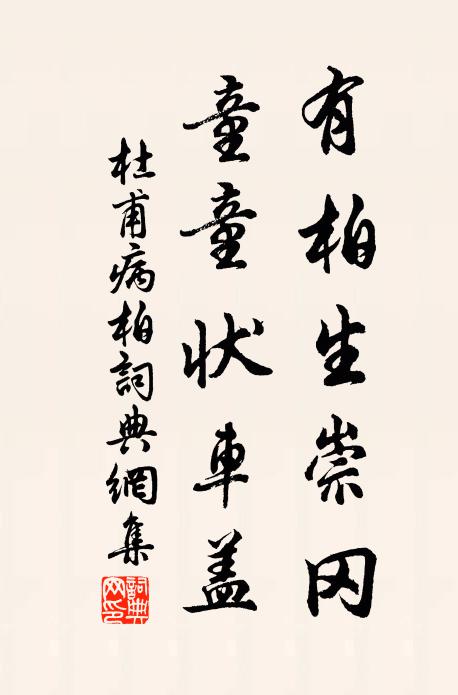 有柏生崇冈
童童状車盖
杜甫病柏詞典網集
詞典網印